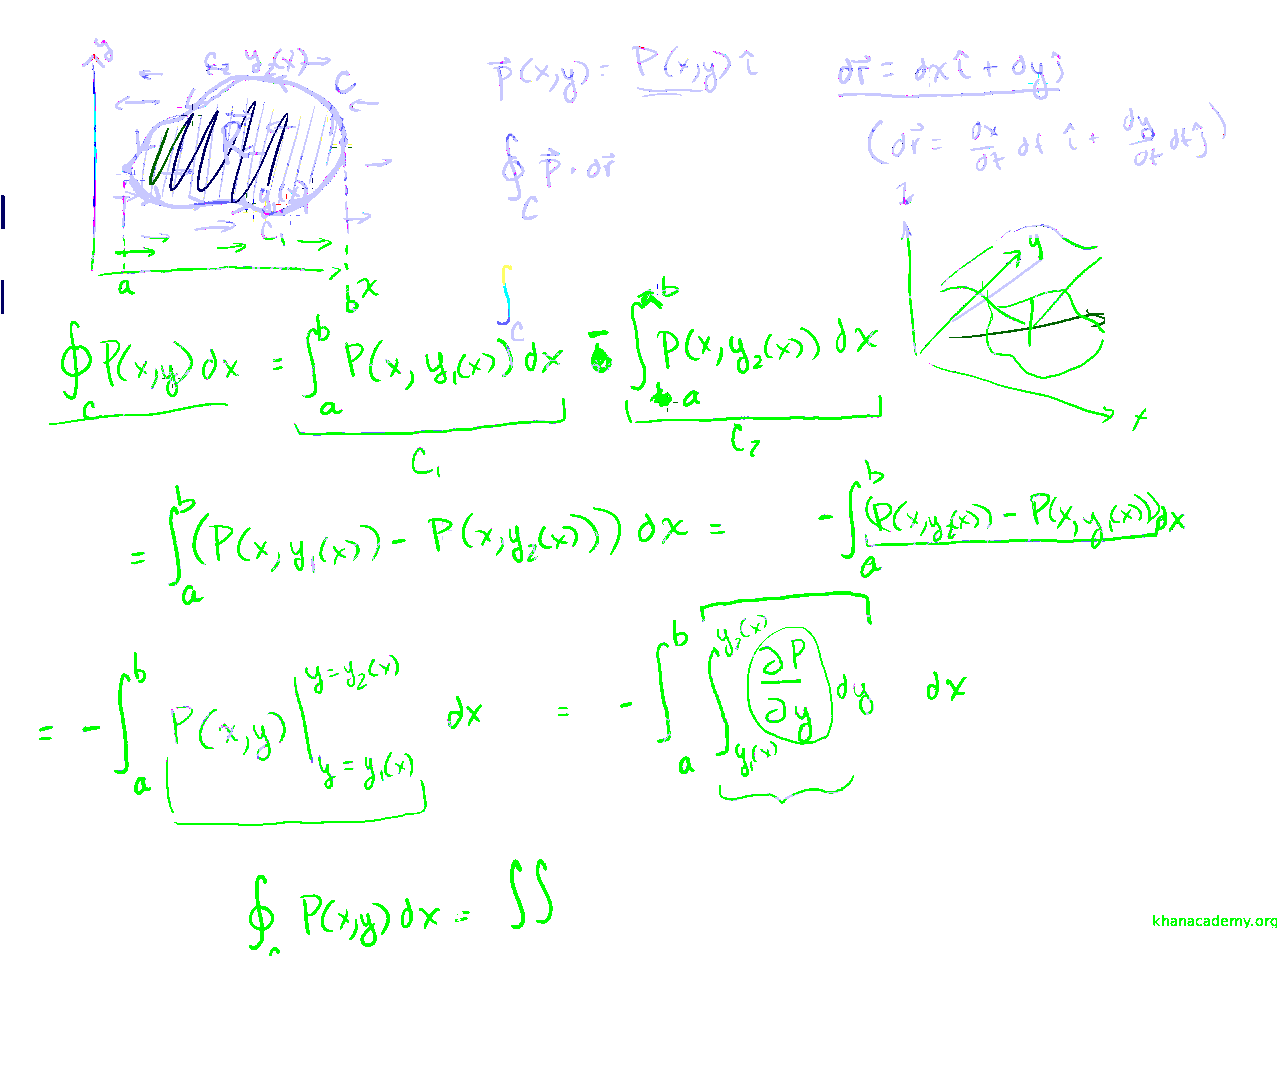 y C₂ y₂(x) C
R
y₁(x)
C₁
a b x
P⃗(x,y) = P(x,y) î
dr⃗ = dx î + dy ĵ
∮_C P⃗ · dr⃗
(dr⃗ = dx/dt dt î + dy/dt dt ĵ)
z
y
x
∫_C
∮_C P(x,y) dx = ∫_a^b P(x, y₁(x)) dx - ∫_a^b P(x, y₂(x)) dx
C₁ C₂
= ∫_a^b (P(x, y₁(x)) - P(x, y₂(x))) dx = - ∫_a^b (P(x, y₂(x)) - P(x, y₁(x))) dx
= - ∫_a^b P(x,y) |_{y = y₁(x)}^{y = y₂(x)} dx = - ∫_a^b ∫_{y₁(x)}^{y₂(x)} ∂P/∂y dy dx
∮_C P(x,y) dx = ∫∫
khanacademy.org